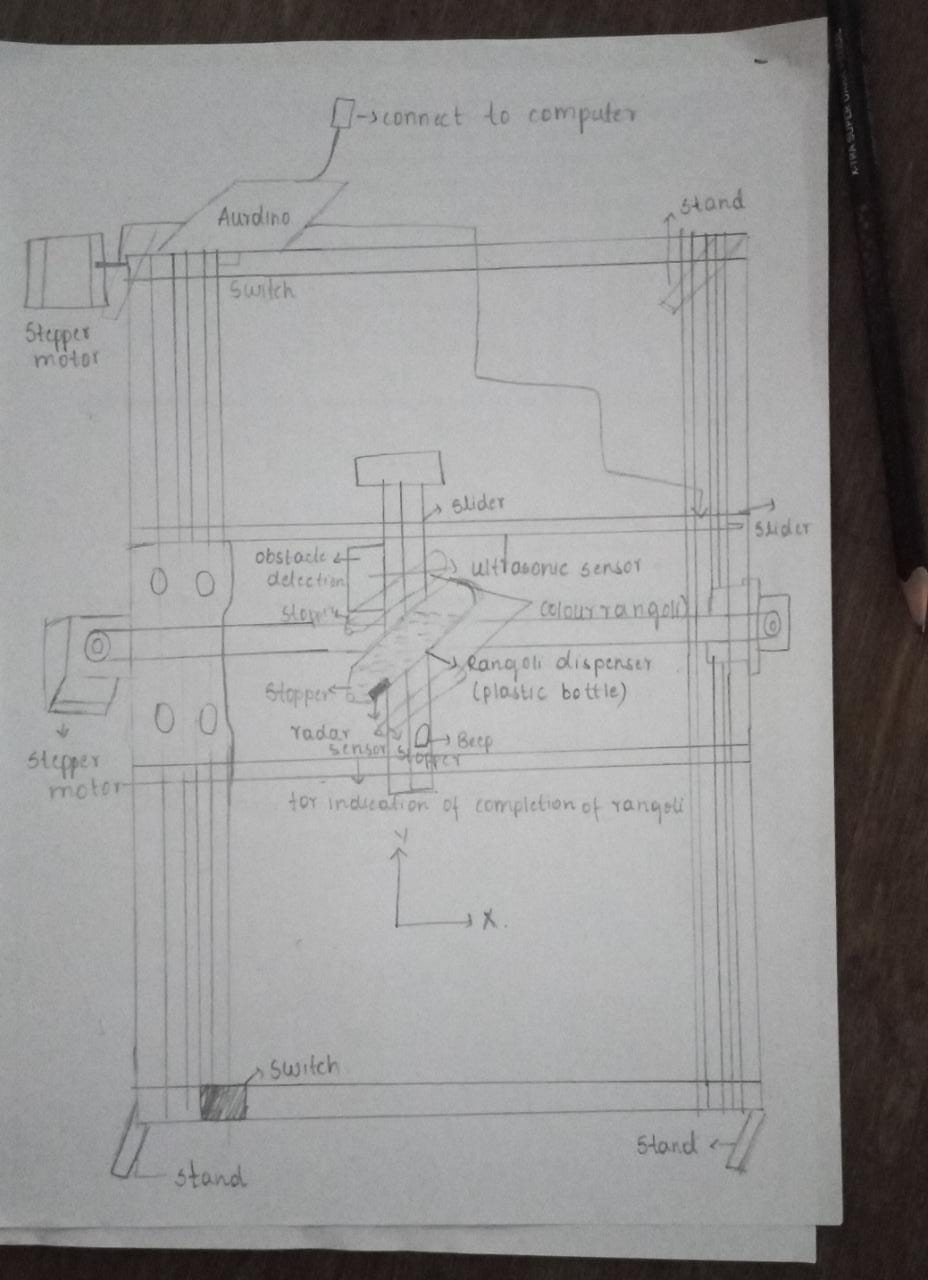 connect to computer
Aurdino
Stand
Switch
Stepper
motor
slider
slider
obstacle
detection
ultrasonic sensor
colour rangoli
Rangoli dispenser
(plastic bottle)
Stopper
radar
sensor
stopper
Beep
Stepper
motor
for indication of completion of rangoli
Y
X.
Switch
Stand
Stand